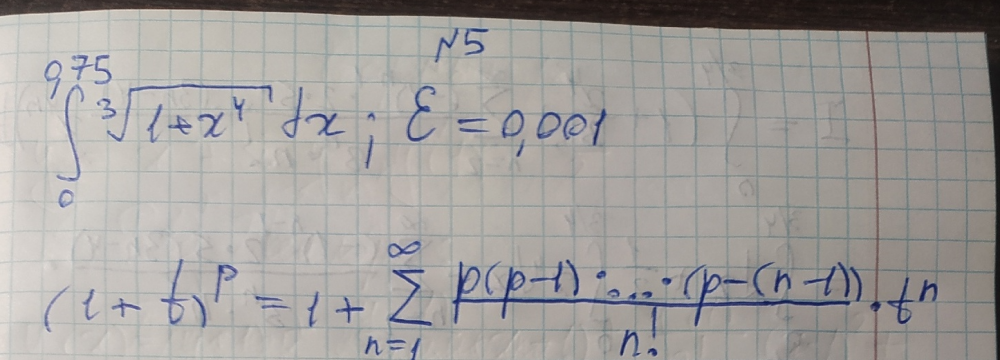 N5
∫₀^0,75 ∛(1+x⁴) dx ; ℰ = 0,001
(1 + t)^p = 1 + ∑_{n=1}^∞ p(p-1)·...·(p-(n-1))/n! · t^n